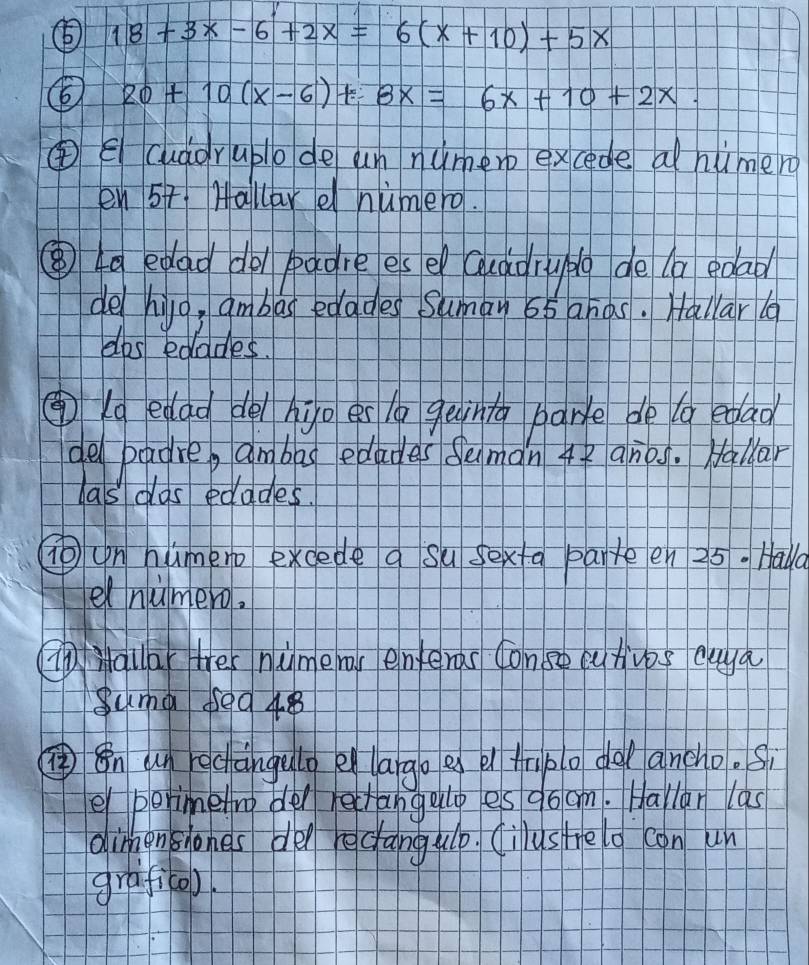 ⑤ 18 + 3x - 6 + 2x = 6(x + 10) + 5x
⑥ 20 + 10(x - 6) + 8x = 6x + 10 + 2x.
⑦ El cuádruplo de un número excede al número
en 57. Hallar el número.
⑧ La edad del padre es el Cuádruplo de la edad
del hijo, ambas edades Suman 65 años. Hallar la
dos edades.
⑨ La edad del hijo es la quinta parte de la edad
del padre, ambas edades Suman 42 años. Hallar
las dos edades.
⑩ Un número excede a su sexta parte en 25. Halla
el número.
⑪ Hallar tres números enteros Consecutivos cuya
Suma sea 48
⑫ En un rectángulo el largo es el triplo del ancho. Si
el perimetro del rectangulo es 96cm. Hallar las
dimensiones del rectangulo. (ilustrelo con un
gráfico).